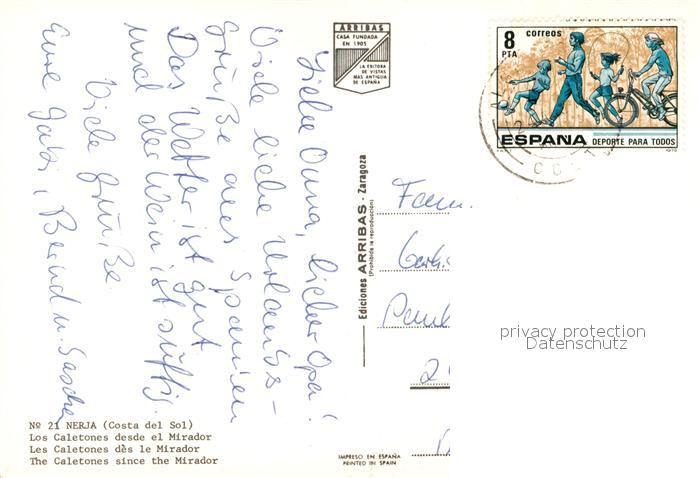 Liebe Oma, lieber Opa!
Viele liebe Urlaubs-
grüße aus Spanien
Das Wetter ist gut
und der Wein ist süffig.
Viele Grüße
Eure Gabi, Bernd u. Sascha
ARRIBAS
CASA FUNDADA
EN 1905
LA EDITORA
DE VISTAS
MAS ANTIGUA
DE ESPAÑA
8
PTA
correos
ESPAÑA DEPORTE PARA TODOS
1979
Ediciones ARRIBAS - Zaragoza
(Prohibida la reproducción)
Fam.
privacy protection
Datenschutz
Nº 21 NERJA (Costa del Sol)
Los Caletones desde el Mirador
Les Caletones dès le Mirador
The Caletones since the Mirador
IMPRESO EN ESPAÑA
PRINTED IN SPAIN